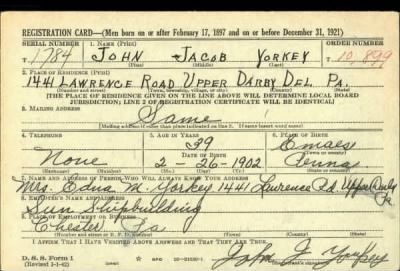 REGISTRATION CARD—(Men born on or after February 17, 1897 and on or before December 31, 1921)
SERIAL NUMBER 1. NAME (Print) ORDER NUMBER
T 1784 JOHN JACOB YORKEY T 10,899
(First) (Middle) (Last)
2. PLACE OF RESIDENCE (Print)
1441 LAWRENCE ROAD UPPER DARBY DEL PA.
(Number and street) (Town, township, village, or city) (County) (State)
[THE PLACE OF RESIDENCE GIVEN ON THE LINE ABOVE WILL DETERMINE LOCAL BOARD
JURISDICTION; LINE 2 OF REGISTRATION CERTIFICATE WILL BE IDENTICAL]
3. MAILING ADDRESS
Same
[Mailing address if other than place indicated on line 2. If same insert word same]
4. TELEPHONE 5. AGE IN YEARS 6. PLACE OF BIRTH
39 Emaes
None DATE OF BIRTH (Town or county)
2-26-1902 Penna
(Exchange) (Number) (Mo.) (Day) (Yr.) (State or country)
7. NAME AND ADDRESS OF PERSON WHO WILL ALWAYS KNOW YOUR ADDRESS
Mrs. Edna M. Yorkey 1441 Lawrence Rd. Upper Darby Pa
8. EMPLOYER'S NAME AND ADDRESS
Sun Shipbuilding
9. PLACE OF EMPLOYMENT OR BUSINESS
Chester Pa
(Number and street or R. F. D. number) (Town) (County) (State)
I AFFIRM THAT I HAVE VERIFIED ABOVE ANSWERS AND THAT THEY ARE TRUE.
D. S. S. Form 1
(Revised 1-1-42) (over) GPO John J Yorkey